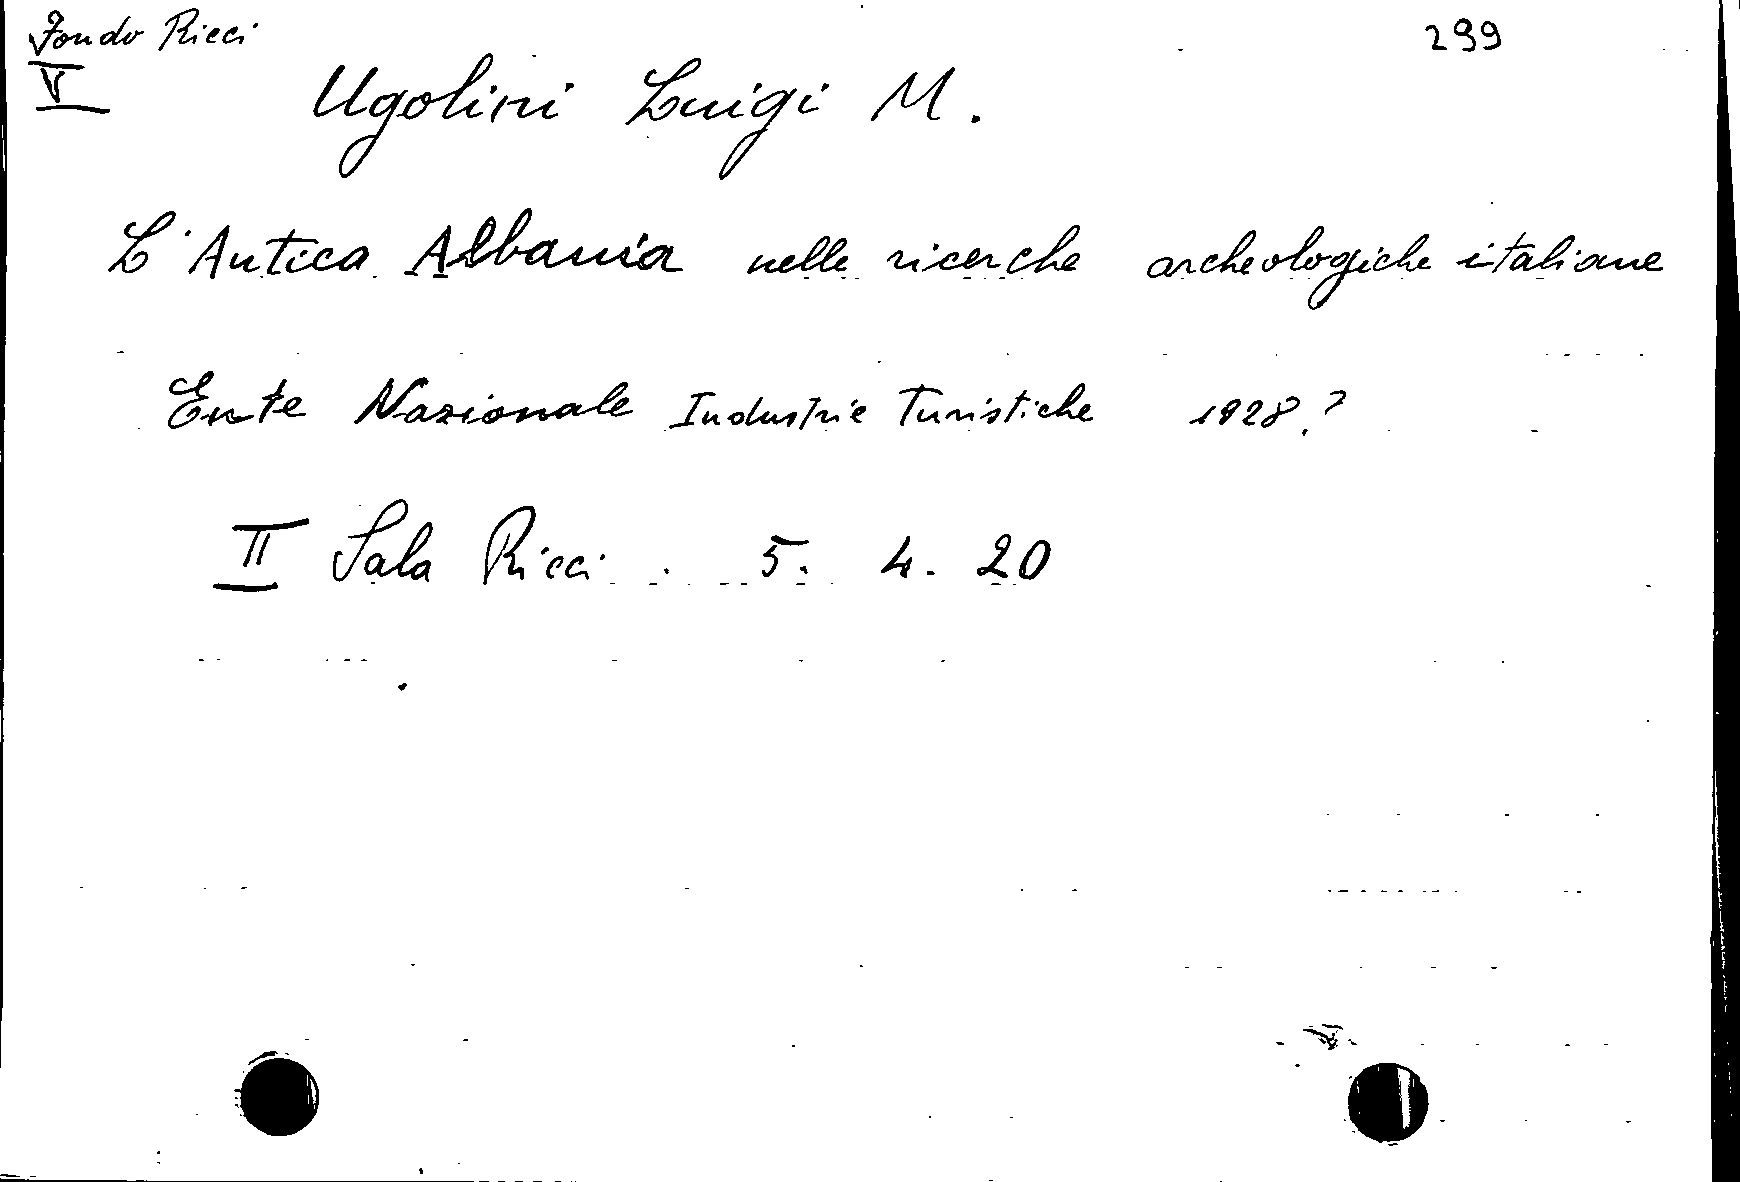 Fondo Ricci 299
V
Ugolini Luigi M.
L'Antica Albania nelle ricerche archeologiche italiane
Ente Nazionale Industrie Turistiche 1928?
II Sala Ricci. 5. 4. 20